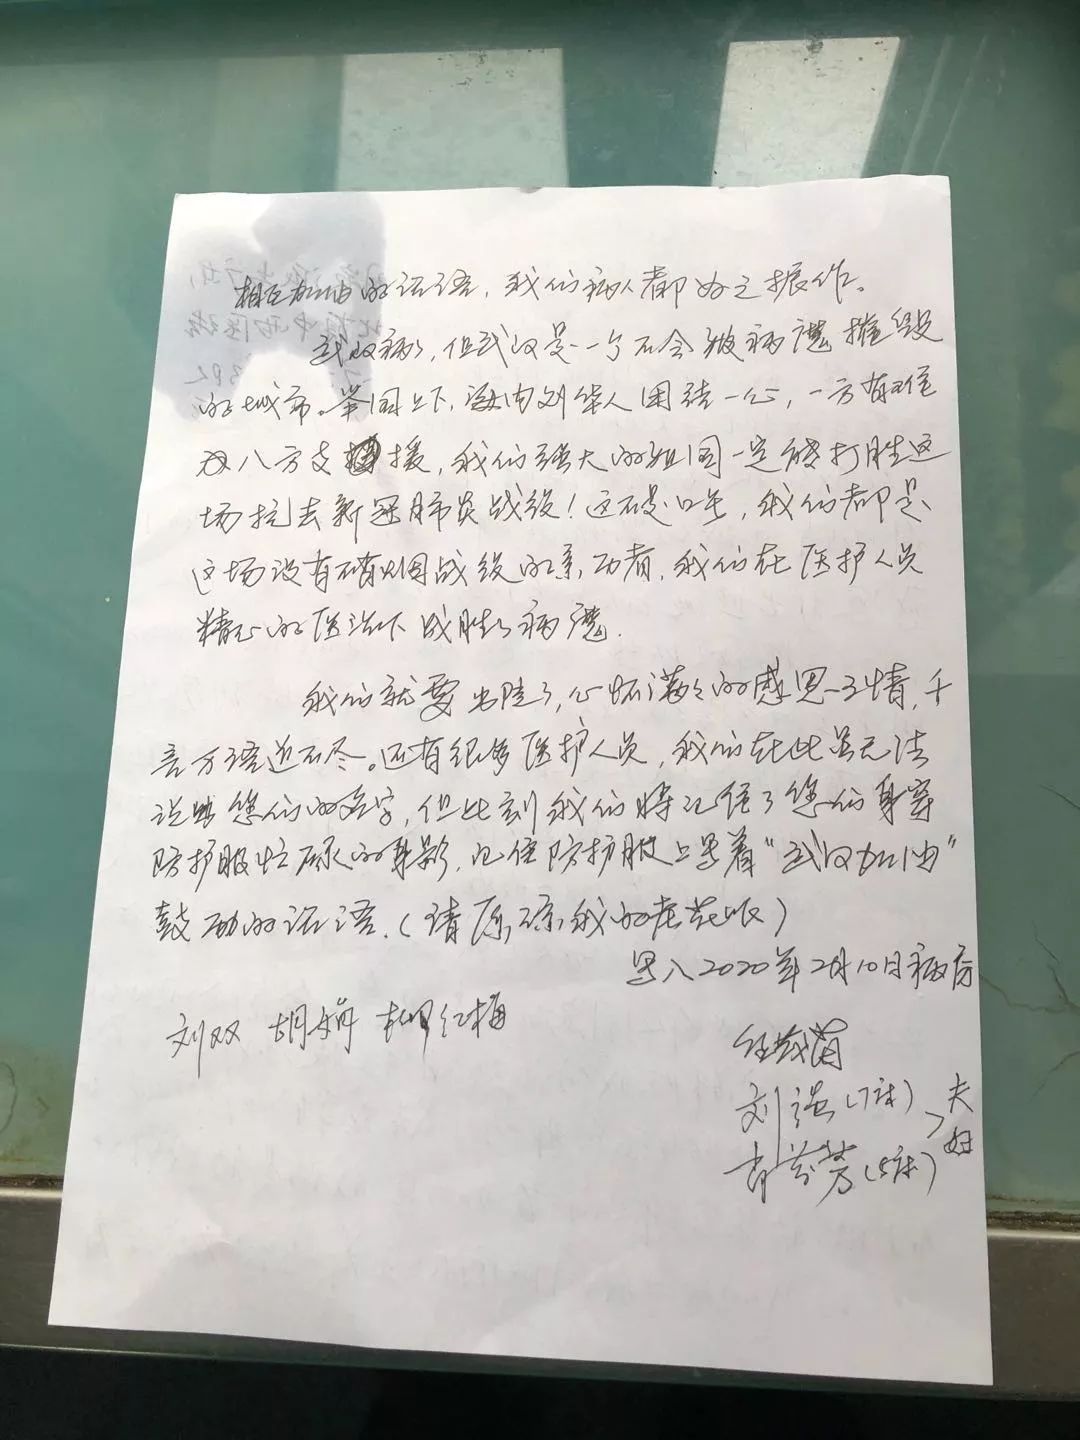 相互加油的话语，我们病人都好之振作。
武汉病了，但武汉是一个不会被病魔摧毁
的城市。举国上下，海内外华人团结一心，一方有难
八方支援，我们强大的祖国一定能打胜这
场抗击新冠肺炎战役！这不是口号，我们都是
这场没有硝烟战役的亲历者，我们在医护人员
精心的医治下战胜了病魔.
我们就要出院了，心怀满满的感恩之情，千
言万语道不尽。还有很多医护人员，我们在此虽无法
说出您们的名字，但此刻我们将记住了您们身穿
防护服忙碌的身影，记住防护服上写着“武汉加油”
鼓励的话语.（请原谅我的老花眼）
写入2020年2月10日病房
刘双 胡娟 柳红梅
任茂茵
刘强（7床）
肖芳（5床）
夫妇